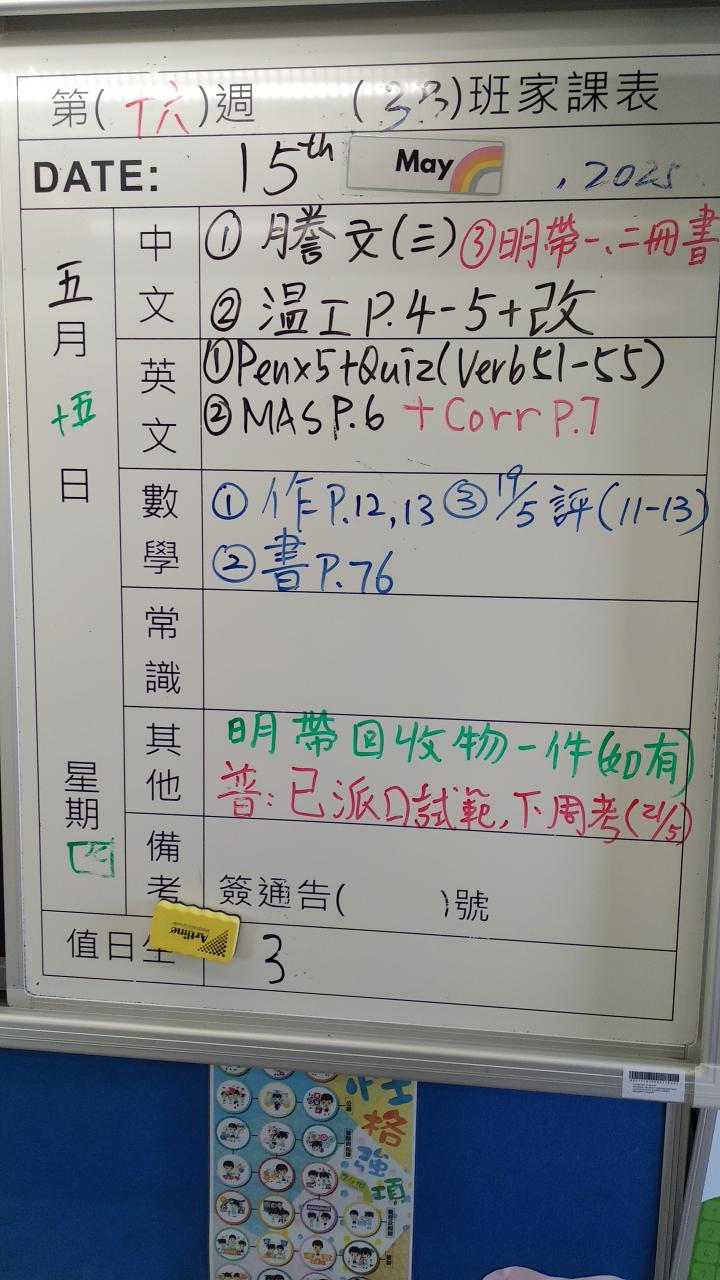 第(十六)週 (3B)班家課表
DATE: 15th May , 2025
五月十五日 星期四
中文 ① 謄文(三) ③明帶一、二冊書
② 温工P.4-5+改
英文 ①Penx5+Quiz(Verb51-55)
②MAS P.6 + Corr P.7
數學 ① 作P.12,13 ③ 19/5 評(11-13)
② 書P.76
常識
其他 明帶回收物一件(如有)
普:已派口試範,下周考(21/5)
備考 簽通告( )號
值日生 3
Artline
性格強項